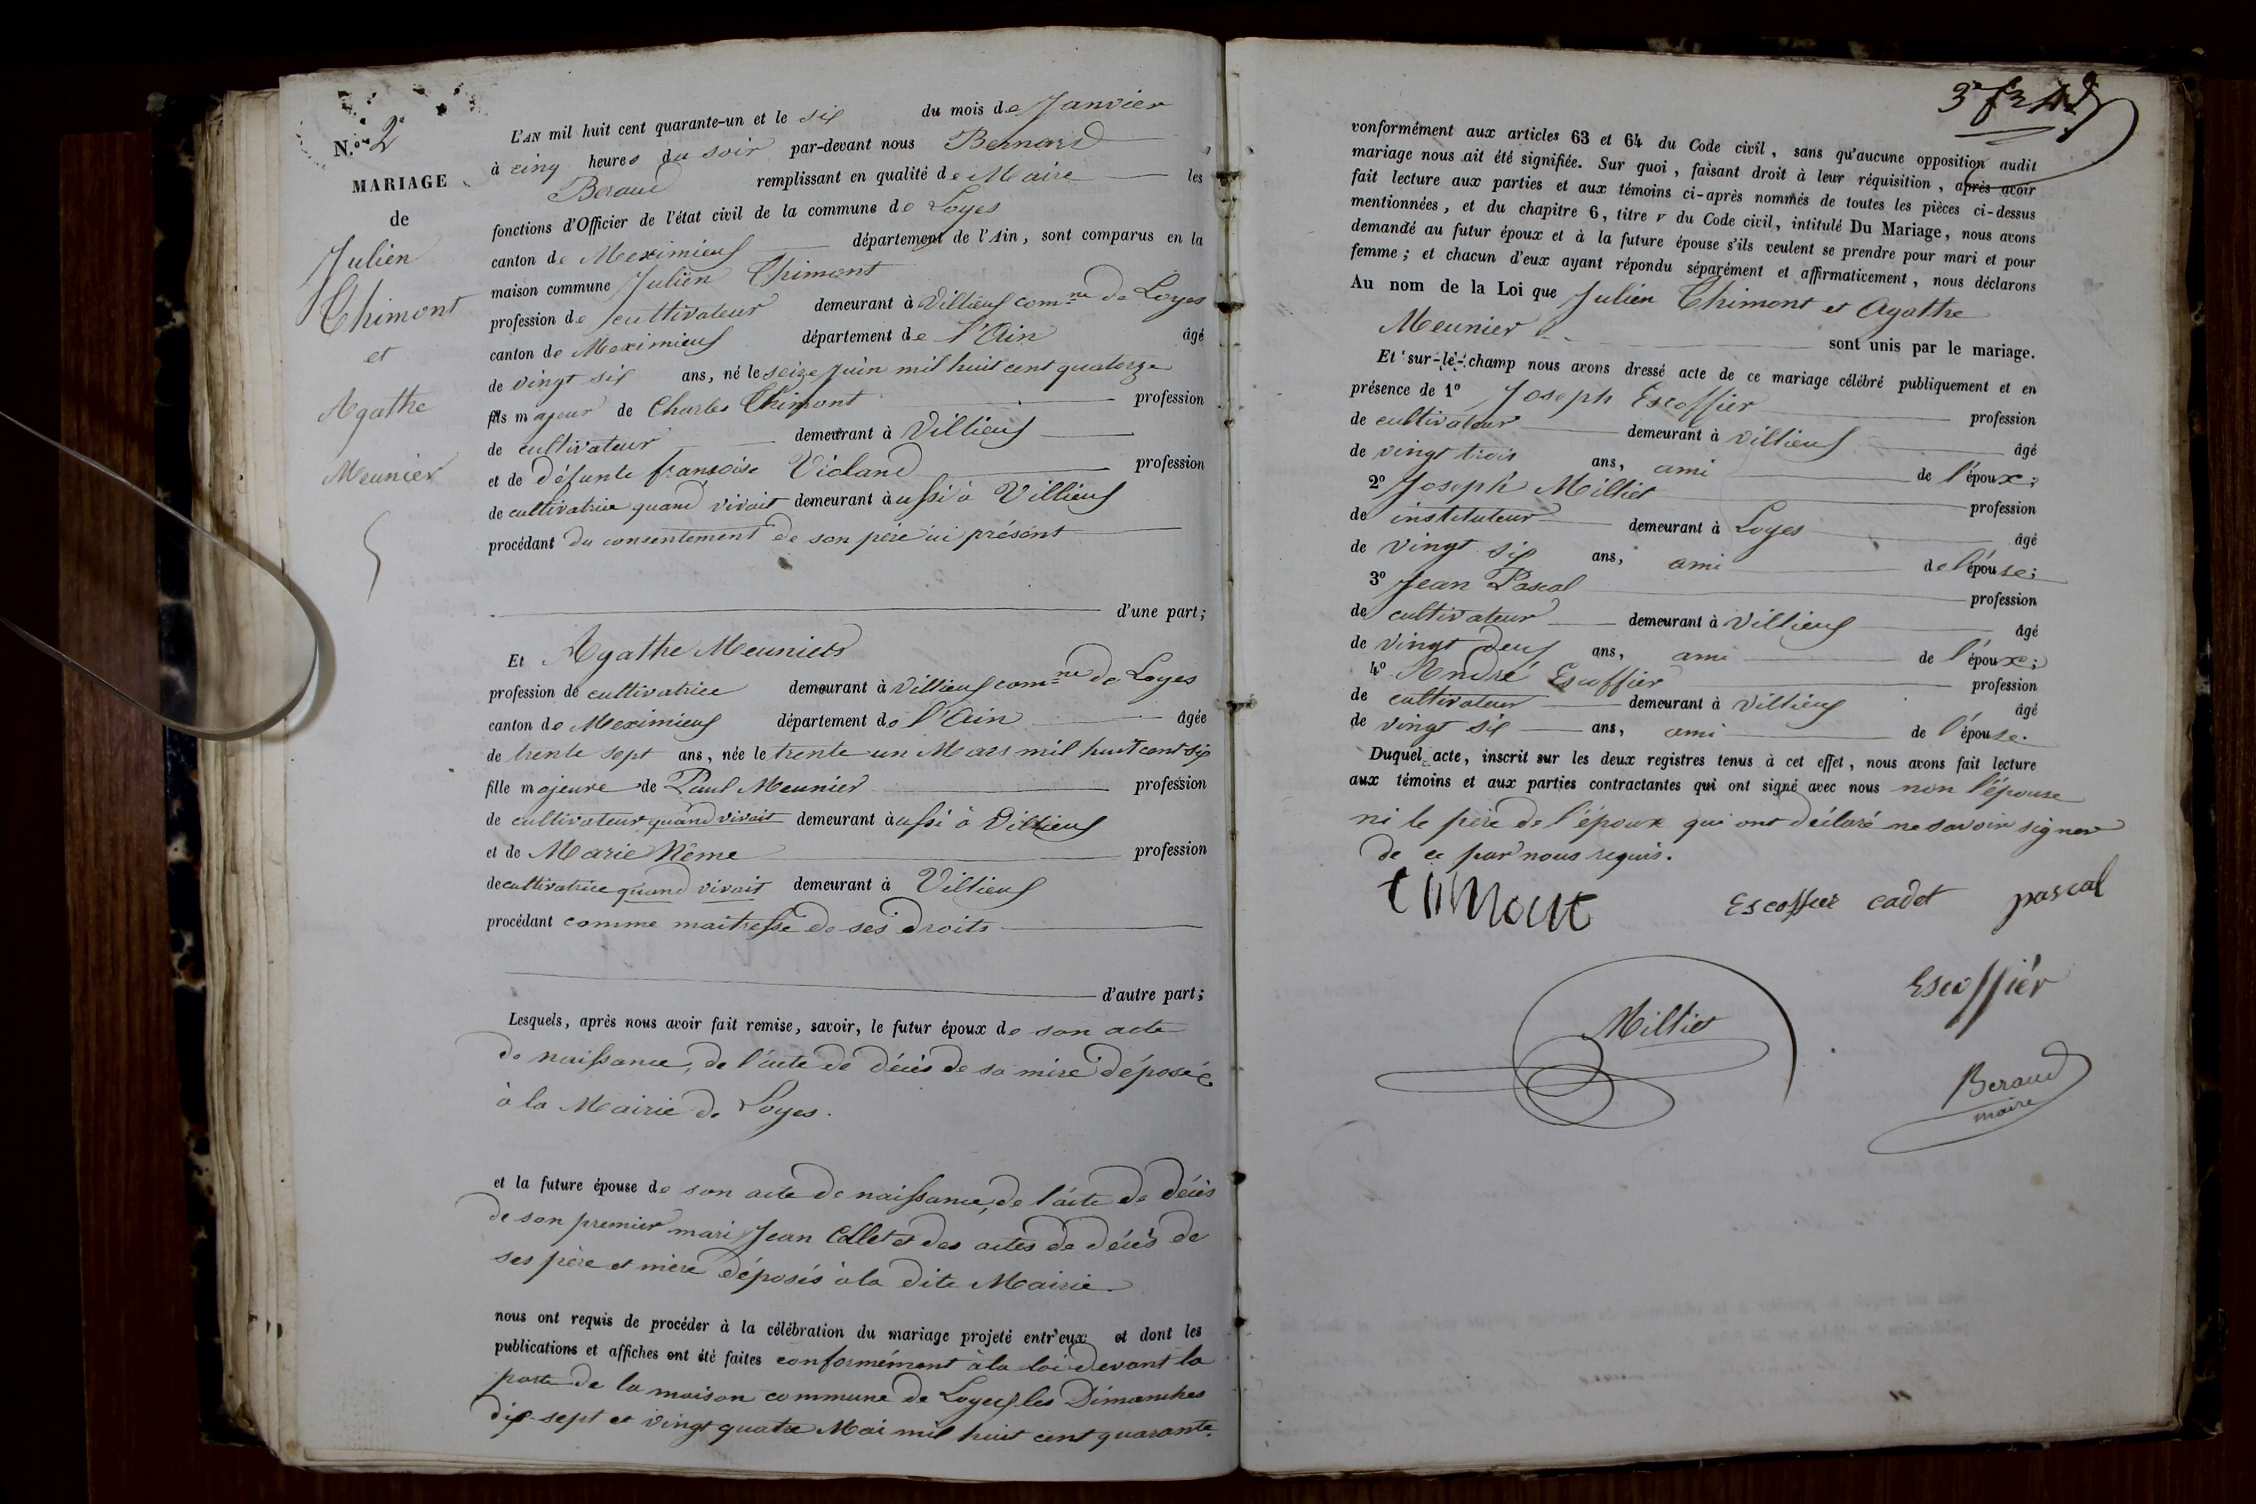 N.º 2
MARIAGE
de
Julien
Thimont
et
Agathe
Meunier
L'AN mil huit cent quarante-un et le six du mois de Janvier
à cinq heures du soir par-devant nous Bernard
Beraud remplissant en qualité de Maire les
fonctions d'Officier de l'état civil de la commune de Loyes
canton de Meximieux département de l'Ain, sont comparus en la
maison commune Julien Thimont
profession de cultivateur demeurant à Villieux com.ne de Loyes
canton de Meximieux département de l'Ain âgé
de vingt six ans, né le seize juin mil huit cent quatorze
fils majeur de Charles Thimont profession
de cultivateur demeurant à Villieux
et de défunte françoise Violand profession
de cultivatrice quand vivait demeurant à aussi à Villieux
procédant du consentement de son père ici présent
d'une part;
Et Agathe Meunier
profession de cultivatrice demeurant à Villieux com.ne de Loyes
canton de Meximieux département de l'Ain âgée
de trente sept ans, née le trente un Mars mil huit cent six
fille majeure de Paul Meunier profession
de cultivateur quand vivait demeurant à aussi à Villieux
et de Marie Nême profession
de cultivatrice quand vivait demeurant à Villieux
procédant comme maitresse de ses droits
d'autre part;
Lesquels, après nous avoir fait remise, savoir, le futur époux de son acte
de naissance, de l'acte de décès de sa mère déposés
à la Mairie de Loyes.
et la future épouse de son acte de naissance, de l'acte de décès
de son premier mari Jean Collet et des actes de décès de
ses père et mère déposés à la dite Mairie.
nous ont requis de procéder à la célébration du mariage projeté entr'eux et dont les
publications et affiches ont été faites conformément à la loi devant la
porte de la maison commune de Loyes les Dimanches
dix-sept et vingt quatre Mai mil huit cent quarante.
conformément aux articles 63 et 64 du Code civil, sans qu'aucune opposition audit
mariage nous ait été signifiée. Sur quoi, faisant droit à leur réquisition, après avoir
fait lecture aux parties et aux témoins ci-après nommés de toutes les pièces ci-dessus
mentionnées, et du chapitre 6, titre V du Code civil, intitulé Du Mariage, nous avons
demandé au futur époux et à la future épouse s'ils veulent se prendre pour mari et pour
femme; et chacun d'eux ayant répondu séparément et affirmativement, nous déclarons
Au nom de la Loi que Julien Thimont et Agathe
Meunier sont unis par le mariage.
Et sur-le-champ nous avons dressé acte de ce mariage célébré publiquement et en
présence de 1º Joseph Escoffier profession
de cultivateur demeurant à Villieux âgé
de vingt trois ans, ami de l'époux;
2º Joseph Milliet profession
de instituteur demeurant à Loyes âgé
de vingt six ans, ami de l'épouse;
3º Jean Pascal profession
de cultivateur demeurant à Villieux âgé
de vingt deux ans, ami de l'époux;
4º André Escoffier profession
de cultivateur demeurant à Villieux âgé
de vingt six ans, ami de l'épouse.
Duquel acte, inscrit sur les deux registres tenus à cet effet, nous avons fait lecture
aux témoins et aux parties contractantes qui ont signé avec nous non l'épouse
ni le père de l'époux qui ont déclaré ne savoir signer
de ce par nous requis.
timont Escoffier cadet pascal
Escoffier
Milliet
Beraud
maire